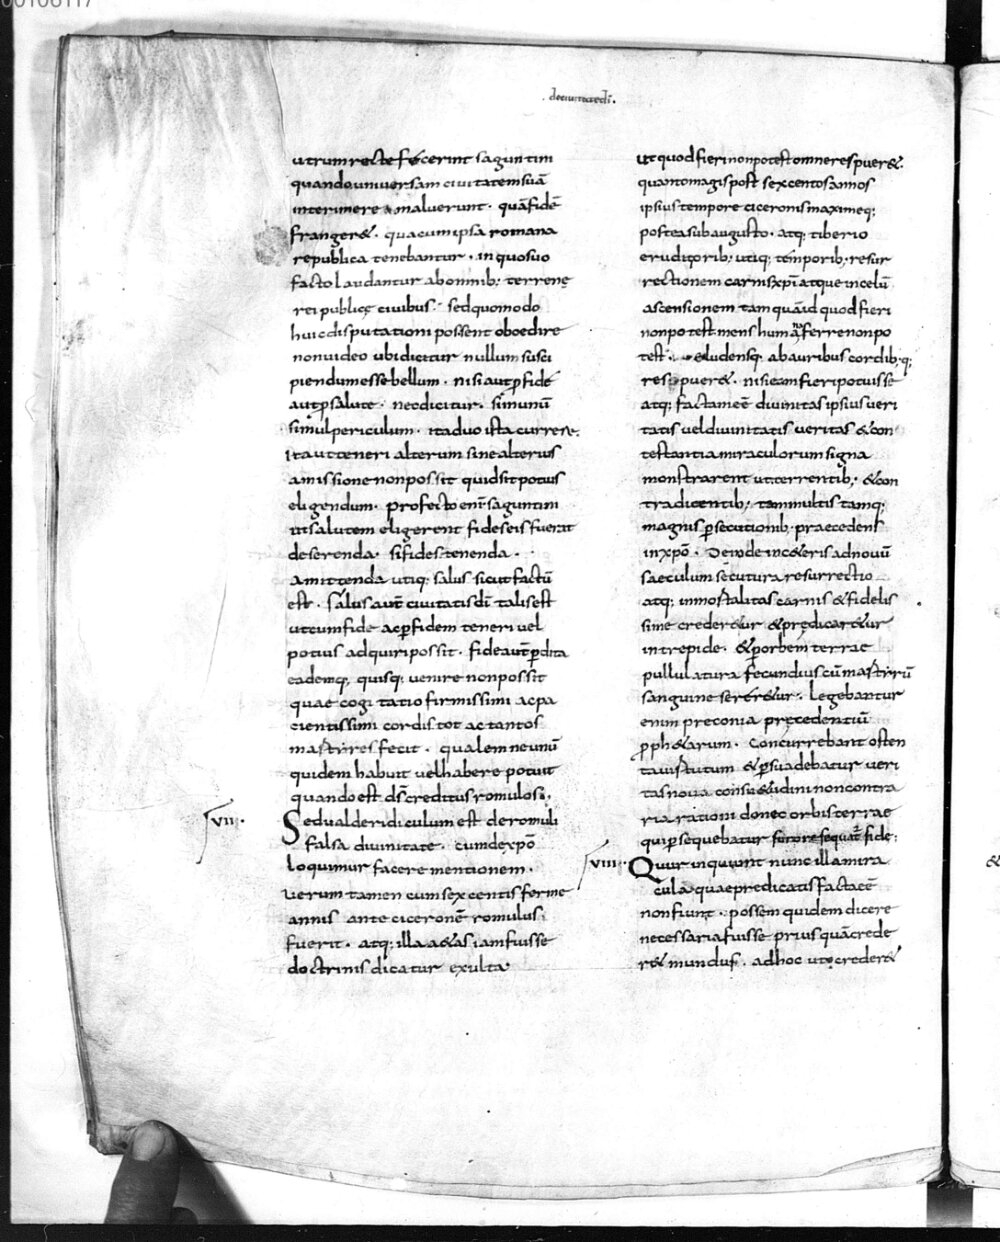 00106117
. deciuitatedi͞ .
utrum recte fecerint saguntini
quando uniuersam ciuitatem suā
interimere maluerunt . quā fidē
frangere& . qua cum ipsa romana
republica tenebantur . in quo suo
facto laudantur ab omnib; terrenę
rei publicę ciuibus . sed quomodo
huic disputationi possent oboedire
non uideo ubi dicitur nullum susci
piendum esse bellum . nisi aut ꝓ fide
aut ꝓ salute . nec dicitur . si in unū
simul periculum . ita duo ista currere .
ita ut teneri alterum sine alterius
amissione non possit quid sit potius
eligendum . profecto enī saguntini
ut salutem eligerent fides eis fuerat
deserenda . si fides tenenda .
amittenda utiq; salus sicut factū
est . salus aut̄ ciuitatis dī talis est
ut cum fide ac ꝑ fidem teneri uel
potius adquiri possit . fide aut̄ ꝑdita
ead emq; quisq; uenire non possit
quae cogitatio firmissimi ac pa
cientissimi cordis tot ac tantos
martyres fecit . qualem ne unū
quidem habuit uel habere potuit
quando est ds̄ creditus romulus .
VII .
Sed ualde ridiculum est de romuli
falsa diuinitate . cum de xp̄o
loquimur facere mentionem .
uerum tamen cum sexcentis ferme
annis ante ciceronē romulus
fuerit . atq; illa aetas iam fuisse
doctrinis dicatur exulta
ut quod fieri non potest omne respuer& .
quanto magis post sexcentos annos
ipsius tempore ciceronis maximeq;
postea sub augusto . atq; tiberio
eruditiorib; utiq; temporib; resur
rectionem carnis xpī atque in celū
ascensionem tam quā id quod fieri
non potest mens humana ferre non po
test . eludensq; ab auribus cordib;q;
respuer& . nisi eam fieri potuisse
atq; factam eē diuinitas ipsius ueri
tatis uel diuinitatis ueritas & con
testantia miraculorum signa
monstrarent ut terrentib; & con
tradicentib; tam multis tamq;
magnis ꝑsecutionib; praecedens
in xp̄o . Deinde in c&eris ad nouū
saeculum secutura resurrectio
atq; inmortalitas carnis & fidelis
sime crederetur & predicar&ur
intrepide . & ꝑ orbem terrae
pullulatura fecundius cū martyrū
sanguine serer&ur . legebantur
enim preconia pręcedentiū
ꝓph&arum . concurrebant osten
ta uirtutum & ꝑsuadebatur ueri
tas noua consu&udini non contra
ria rationi donec orbis terrae
qui ꝑsequebatur furore sequat̄ fide;
VIII .
Quur inquiunt nunc illa mira
cula quae predicatis facta eē
non fiunt . possem quidem dicere
necessaria fuisse prius quā crede
r& mundus . ad hoc ut creder&
&